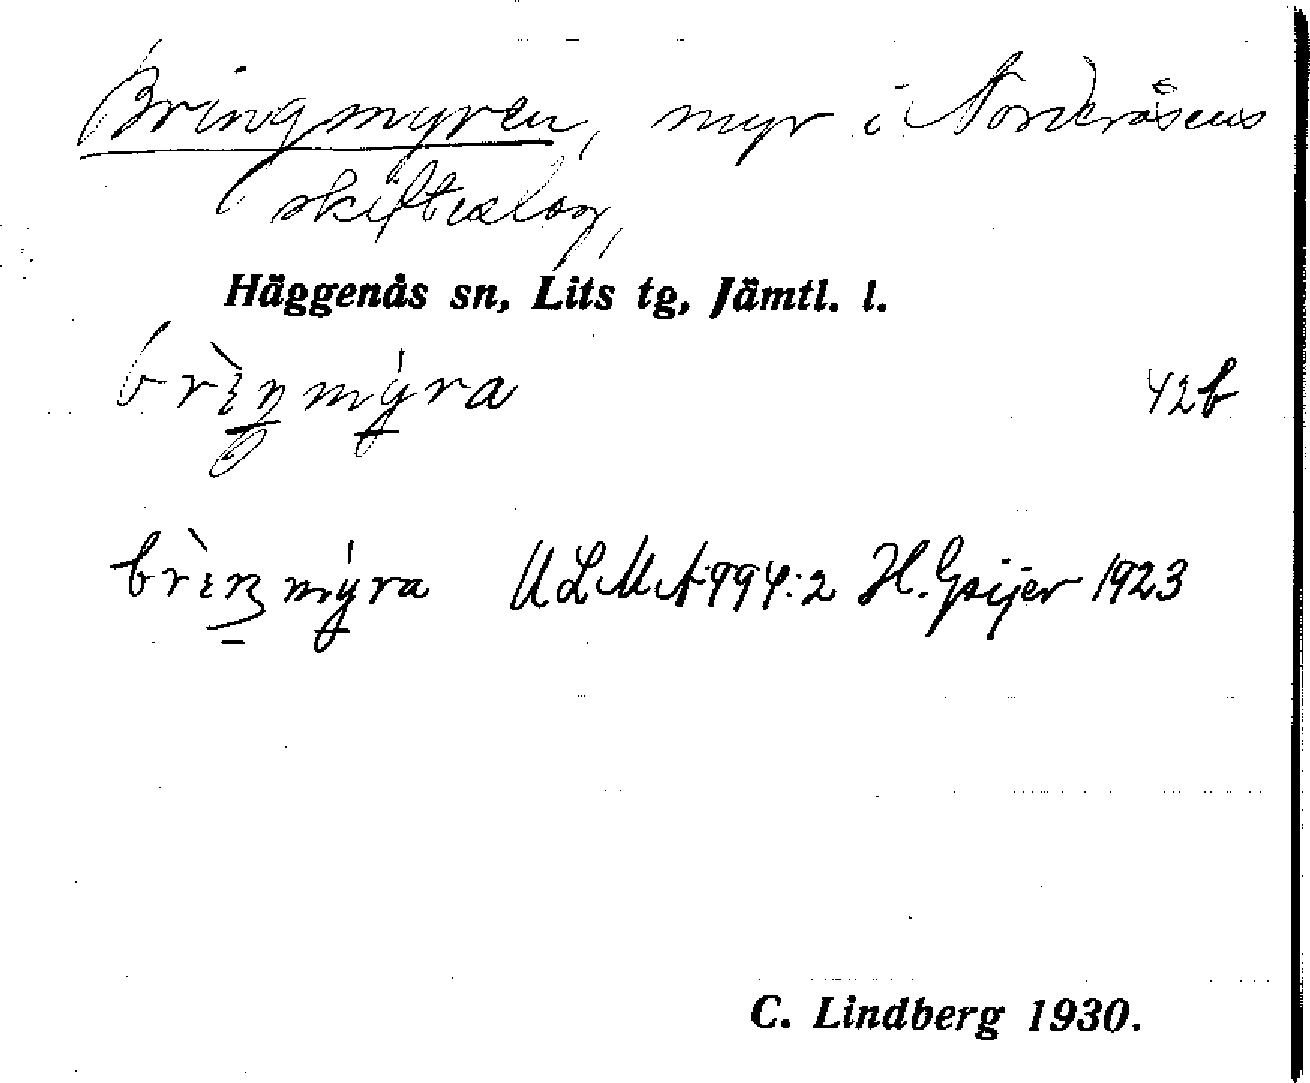 Bringmyren, myr i Nordåsens
skifteslag,
Häggenås sn, Lits tg, Jämtl. l.
brìŋmýra 42b
brìŋmýra ULMA 994:2 H. Geijer 1923
C. Lindberg 1930.